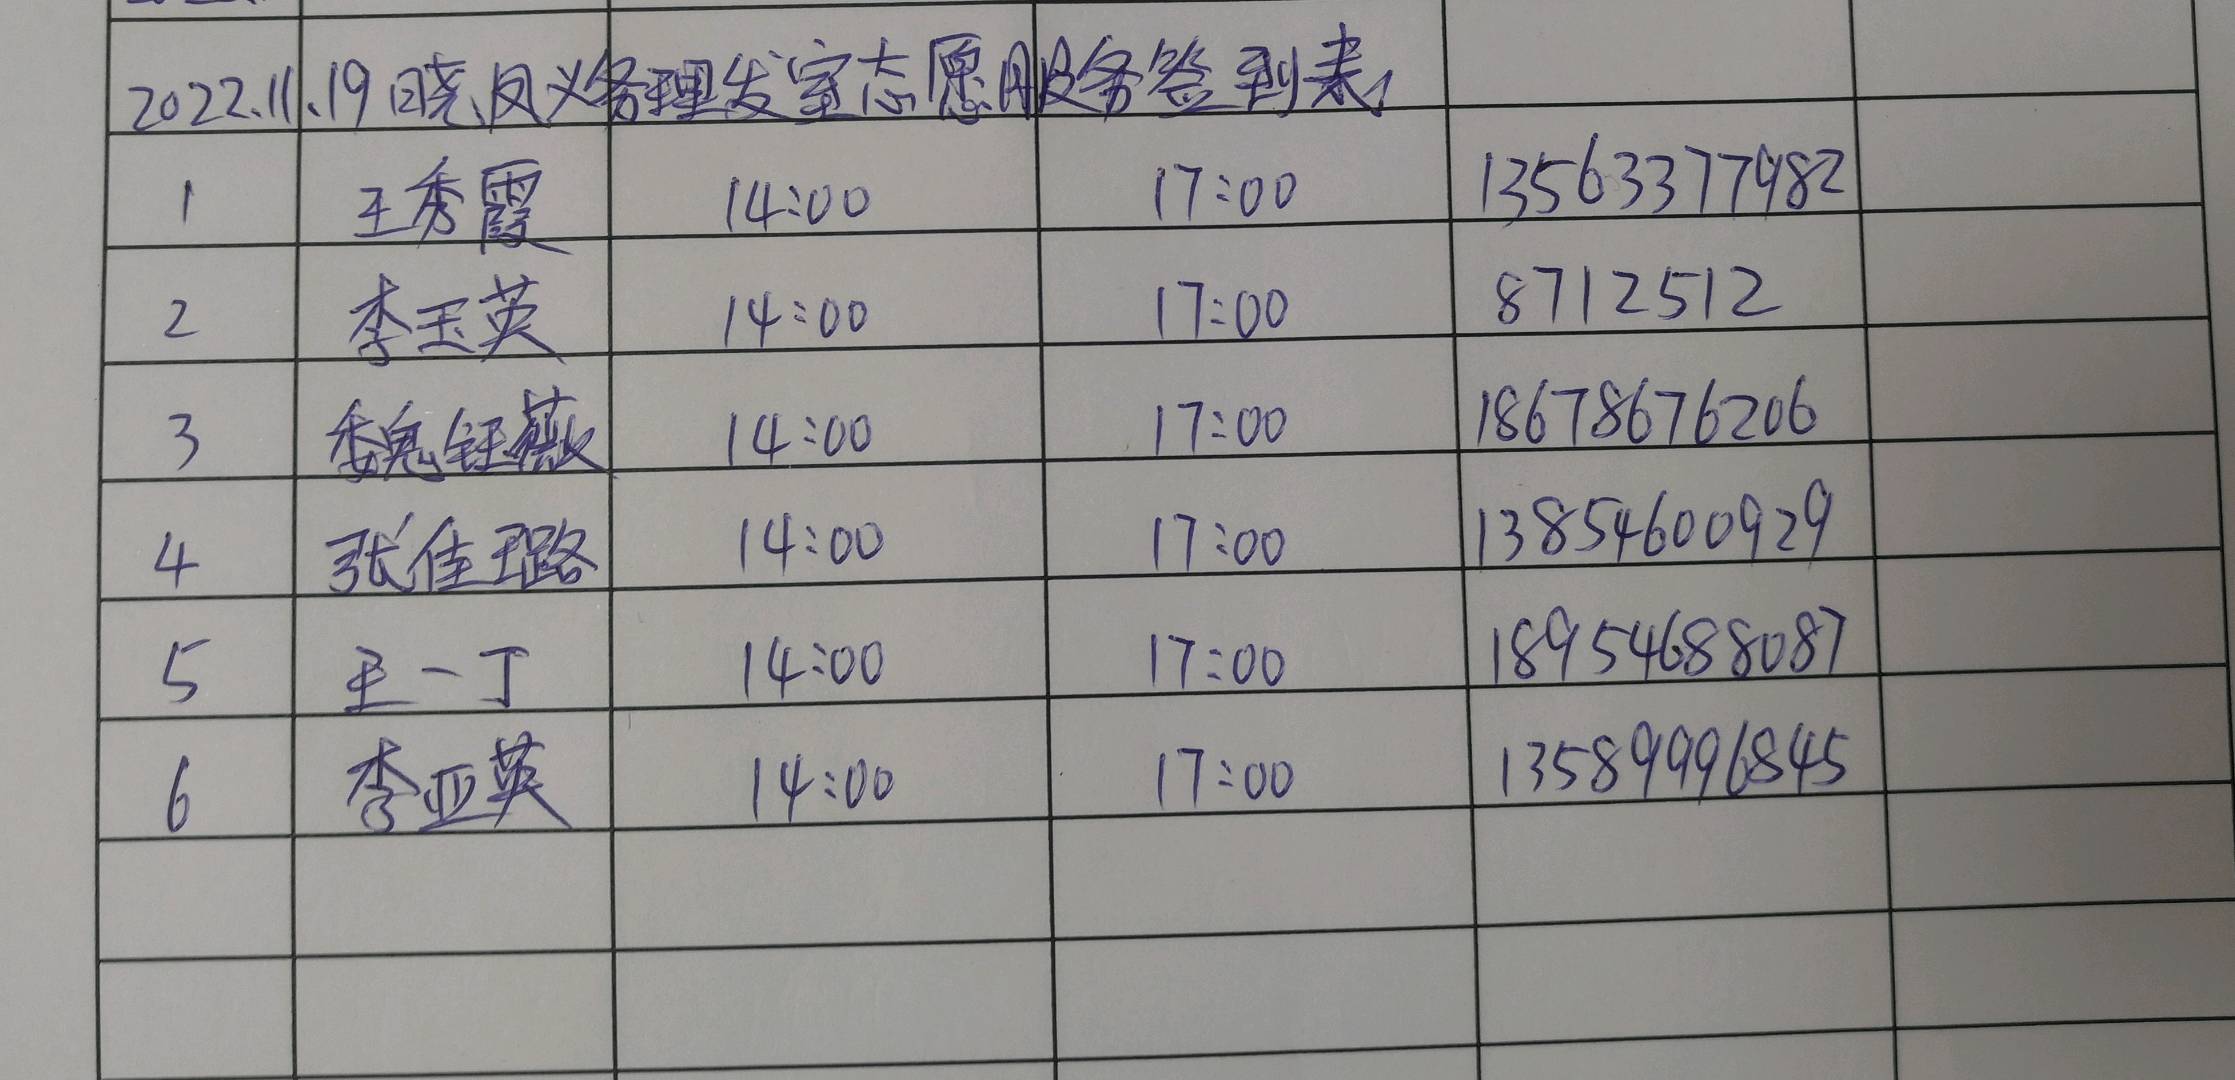 2022.11.19晓凤义务理发室志愿服务签到表
1 王秀霞 14:00 17:00 13563377982
2 李玉英 14:00 17:00 8712512
3 魏钰薇 14:00 17:00 18678676206
4 张佳璐 14:00 17:00 13854600929
5 王一丁 14:00 17:00 18954688087
6 李亚英 14:00 17:00 13589996845